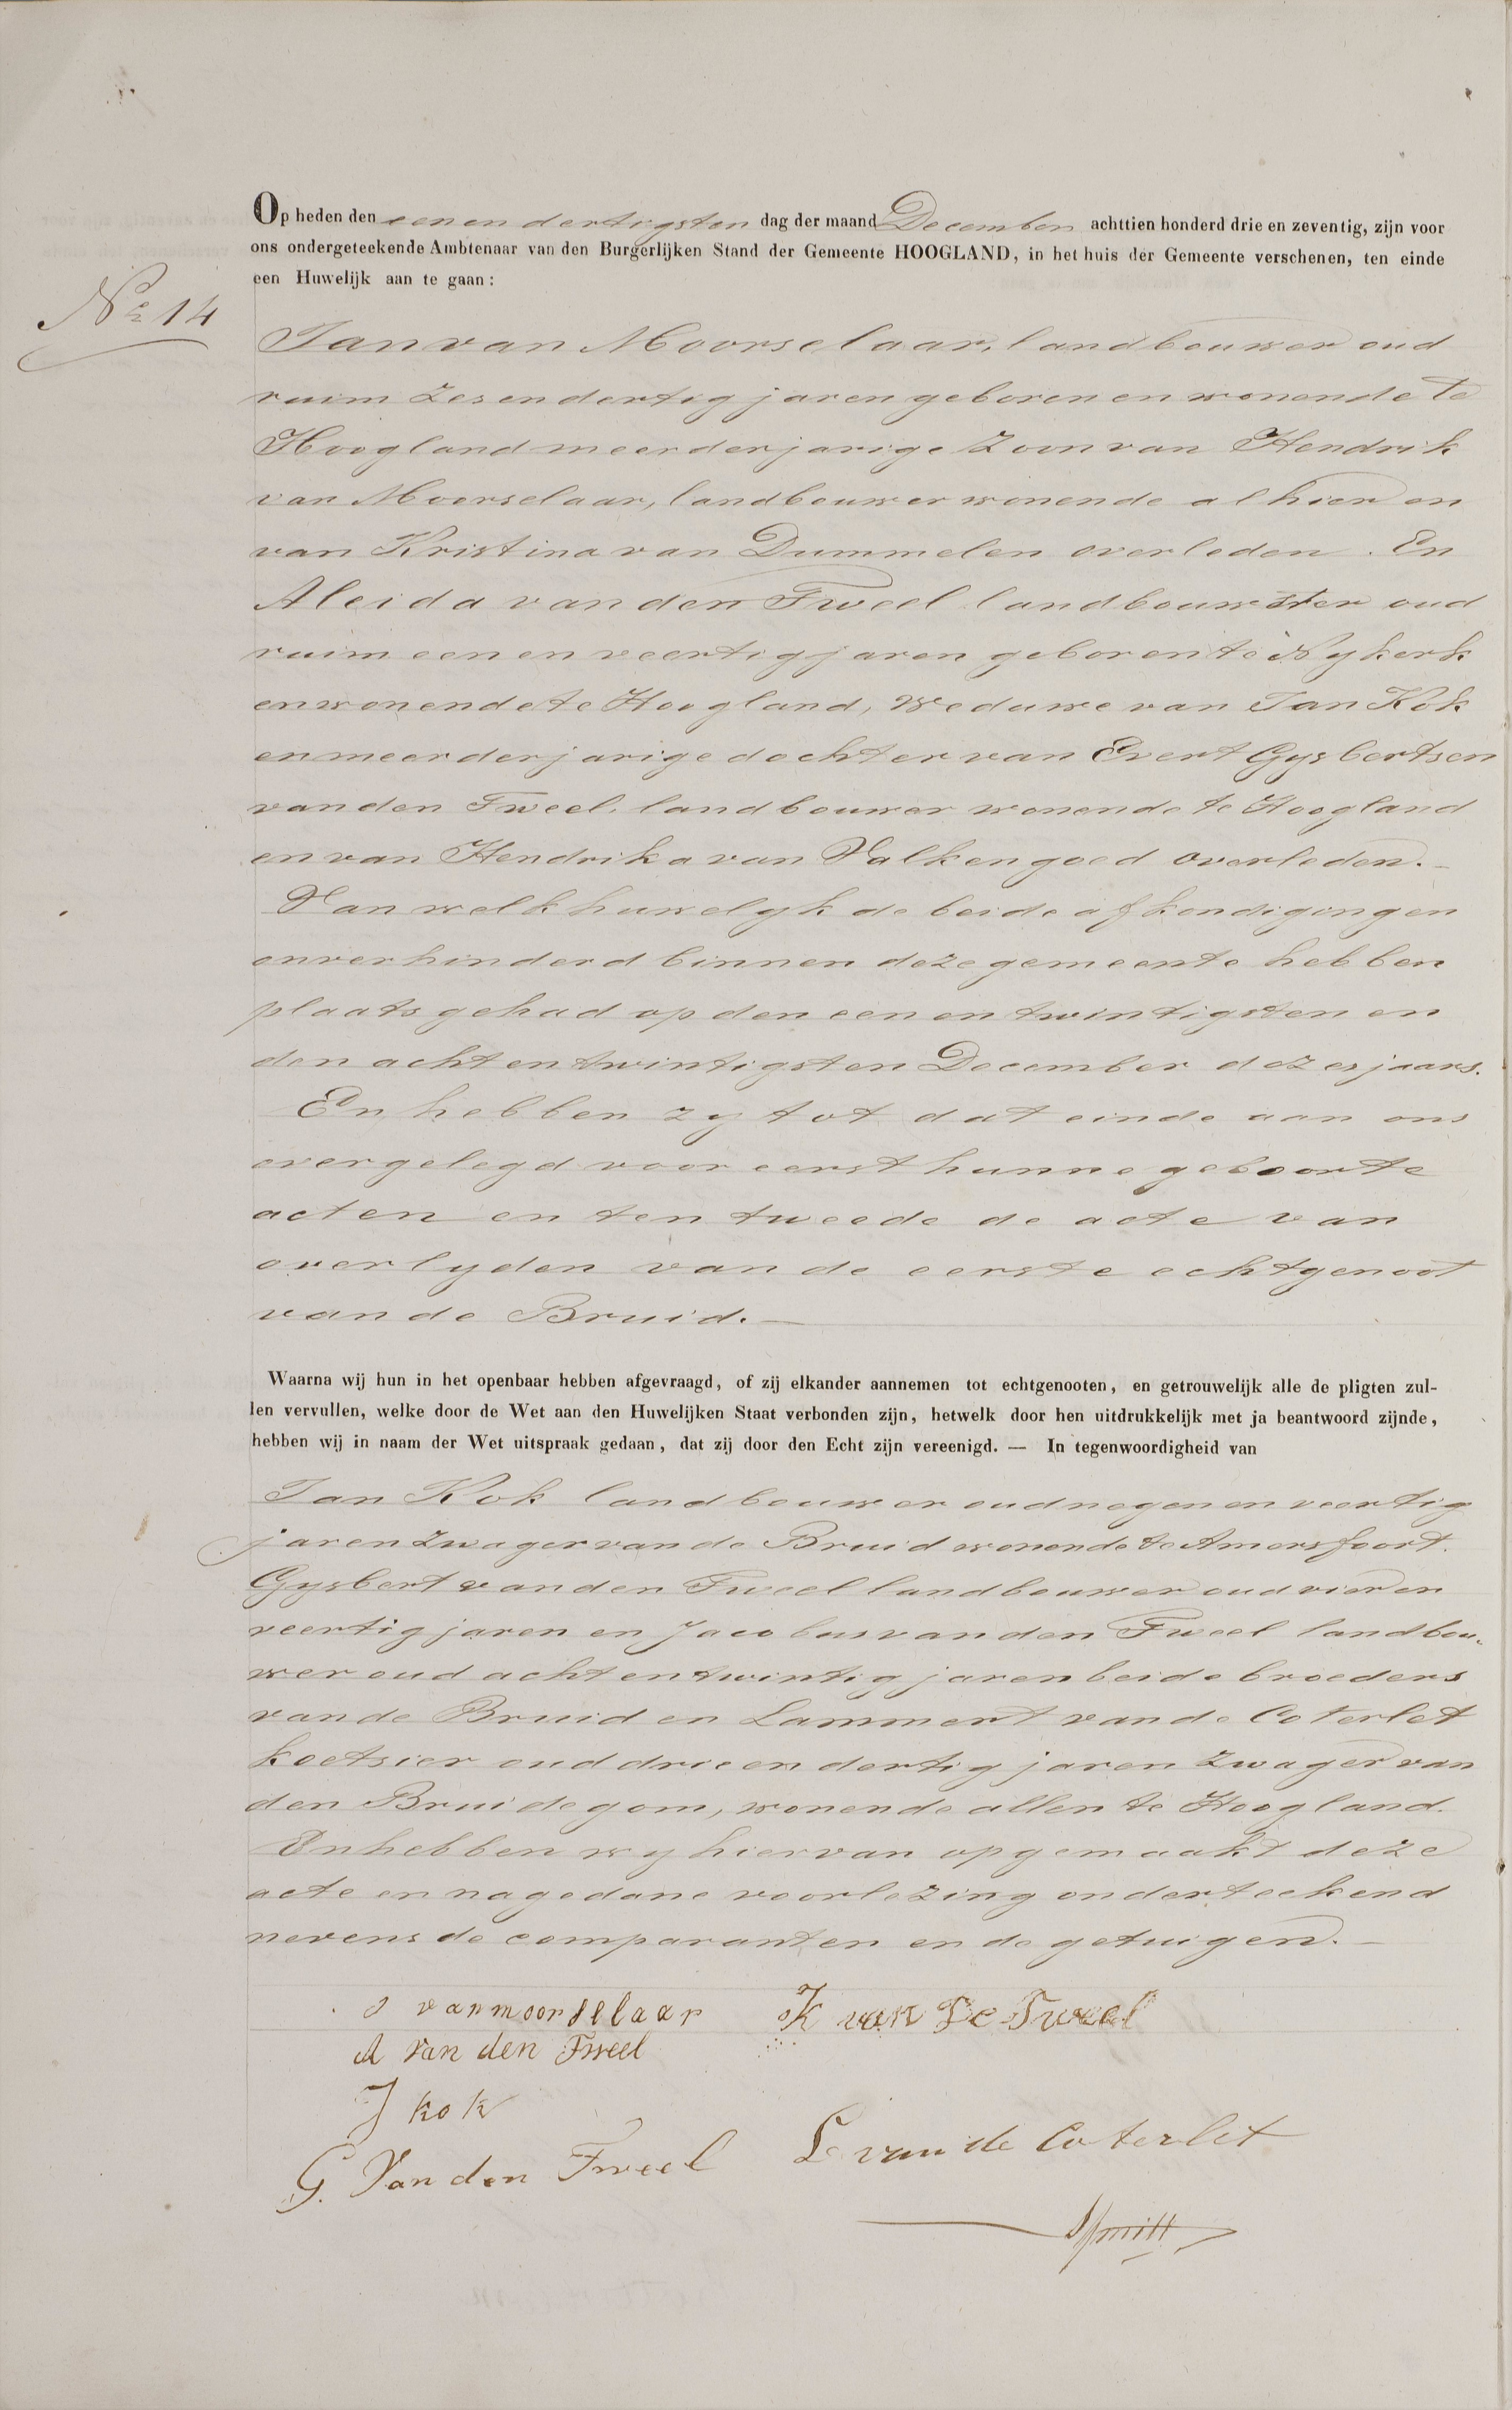 Op heden den eenendertigsten dag der maand December achttien honderd drie en zeventig, zijn voor
ons ondergeteekende Ambtenaar van den Burgerlijken Stand der Gemeente HOOGLAND, in het huis der Gemeente verschenen, ten einde
een Huwelijk aan te gaan:
No 14
Jan van Moorselaar, landbouwer oud
ruim zesendertig jaren geboren en wonende te
Hoogland meerderjarige zoon van Hendrik
van Moorselaar, landbouwer wonende alhier en
van Kristina van Dummelen overleden. En
Aleida van den Tweel landbouwster oud
ruim een en veertig jaren geboren te Nykerk
en wonende te Hoogland, Weduwe van Jan Kok
en meerderjarige dochter van Evert Gysbertsen
van den Tweel, landbouwer wonende te Hoogland
en van Hendrika van Valkengoed overleden.-
Van welk huwelyk de beide afkondigingen
onverhinderd binnen deze gemeente hebben
plaats gehad op den een en twintigsten en
den achtentwintigsten December dezes jaars.
En hebben zy tot dat einde aan ons
overgelegd voor eerst hunne geboorte
acten en ten tweede de acte van
overlyden van de eerste echtgenoot
van de Bruid.-
Waarna wij hun in het openbaar hebben afgevraagd, of zij elkander aannemen tot echtgenooten, en getrouwelijk alle de pligten zul-
len vervullen, welke door de Wet aan den Huwelijken Staat verbonden zijn, hetwelk door hen uitdrukkelijk met ja beantwoord zijnde,
hebben wij in naam der Wet uitspraak gedaan, dat zij door den Echt zijn vereenigd. — In tegenwoordigheid van
Jan Kok landbouwer oud negen en veertig
jaren zwager van de Bruid wonende te Amersfoort.
Gysbert van den Tweel landbouwer oud vier en
veertig jaren en Jacobus van den Tweel landbou-
wer oud achtentwintig jaren beide broeders
van de Bruid en Lammert van de Coterlet
koetsier oud drie en dertig jaren zwager van
den Bruidegom, wonende allen te Hoogland.
En hebben wy hiervan opgemaakt deze
acte en na gedane voorlezing onderteekend
nevens de comparanten en de getuigen.-
J vanmoorselaar
K van De Tweel
A van den Tweel
J kok
G. Van den Tweel
L van de Coterlet